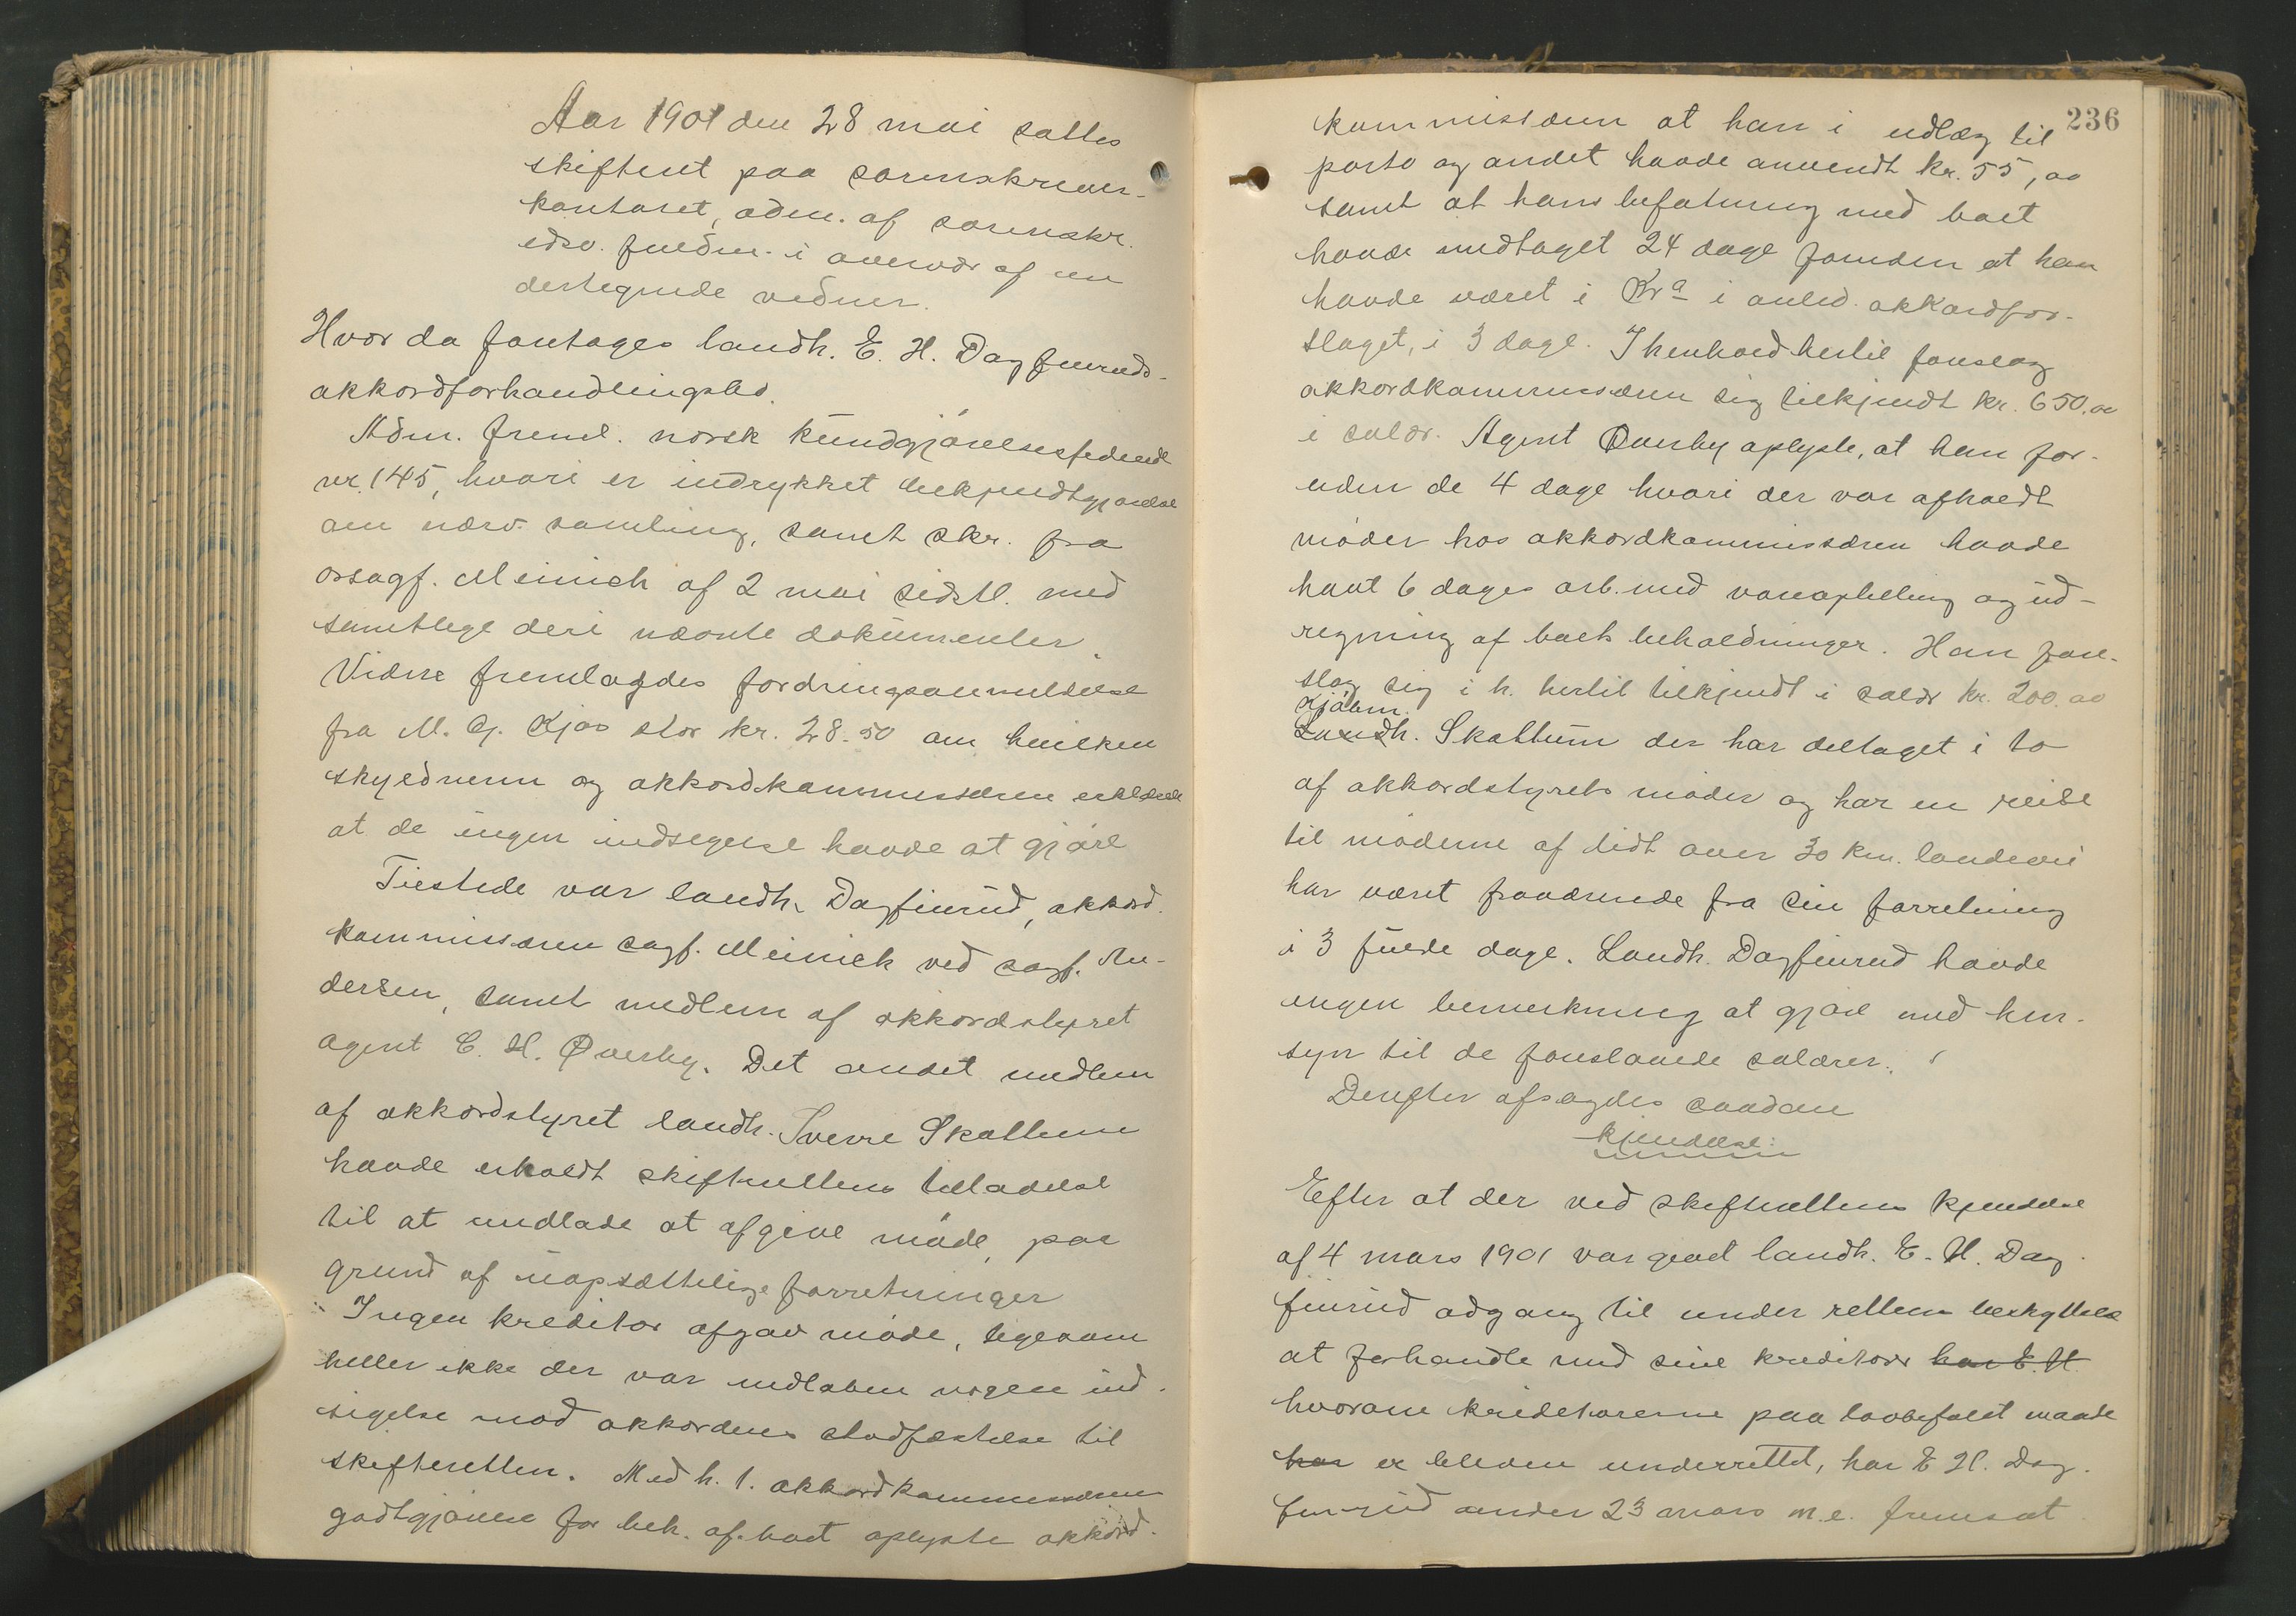 Aar 1901 den 28 mai sattes
skifteret paa sorenskriver-
kontoret, adm. af sorenskr.
edsv. fuldm. i overvær af un
dertegnede vidner.
Hvor da foretoges landh. E. H. Dagfinruds-
akkordforhandlingsbo.
Adm. freml. norsk kundgjørelsestidende
nr. 145, hvori er indrykket bekjendtgjørelse
om nærv. samling, samt skr. fra
o.r.sagf. Meinich af 2 mai sidstl. med
samtlige deri nævnte dokumenter.
Videre fremlagdes fordringsanmeldelse
fra M. G. Kjos stor kr. 28.50 om hvilken
skyldneren og akkordkommissæren erklærede
at de ingen indsigelse havde at gjøre
Tilstede var landh. Dagfinrud, akkord.
kommissæren sagf. Meinich ved sagf. An-
dersen, samt medlem af akkordstyret
agent C. H. Øverby. Det andet medlem
af akkordstyret landh. Sverre Skattum
havde erholdt skifterettens tilladelse
til at undlade at afgive møde, paa
grund af uopsættelige forretninger
Ingen kreditor afgav møde, ligesom
heller ikke der var indløben nogen ind-
sigelse mod akkordens stadfæstelse til
skifteretten. Med h. t. akkordkommissærens
godtgjørelse for beh. af boet oplyste akkord-
236
kommissæren at han i udlæg til
porto og andet havde anvendt kr. 55,00
samt at hans befatning med boet
havde medtaget 24 dage foruden at han
havde været i Kra i anled. akkordfor-
slaget, i 3 dage. I henhold hertil foreslog
akkordkommissæren sig tilkjendt kr. 650.00
i salær. Agent Øverby oplyste, at han for-
uden de 4 dage hvori der var afholdt
møder hos akkordkommissæren havde
havt 6 dages arb. med vareoptelling og ud-
regning af boets beholdninger. Han fore-
slog sig i h. hertil tilkjendt i salær kr. 200.00
Kjøbm.
Landh. Skattum der har deltaget i to
af akkordstyrets møder og har en reise
til møderne af lidt over 30 km. landevei
har været fraværende fra sin forretning
i 3 fulde dage. Landh. Dagfinrud havde
ingen bemerkning at gjøre med hen-
syn til de foreslaaede salærer.
Derefter afsagdes saadan
kjendelse:
Efter at der ved skifterettens kjendelse
af 4 mars 1901 var givet landh. E. H. Dag-
finrud adgang til under rettens beskyttelse
at forhandle med sine kreditorer har E. H.
hvorom kreditorerne paa lovbefalet maade
har er bleven underrettet, har E H. Dag-
finrud under 23 mars m.e. fremsat